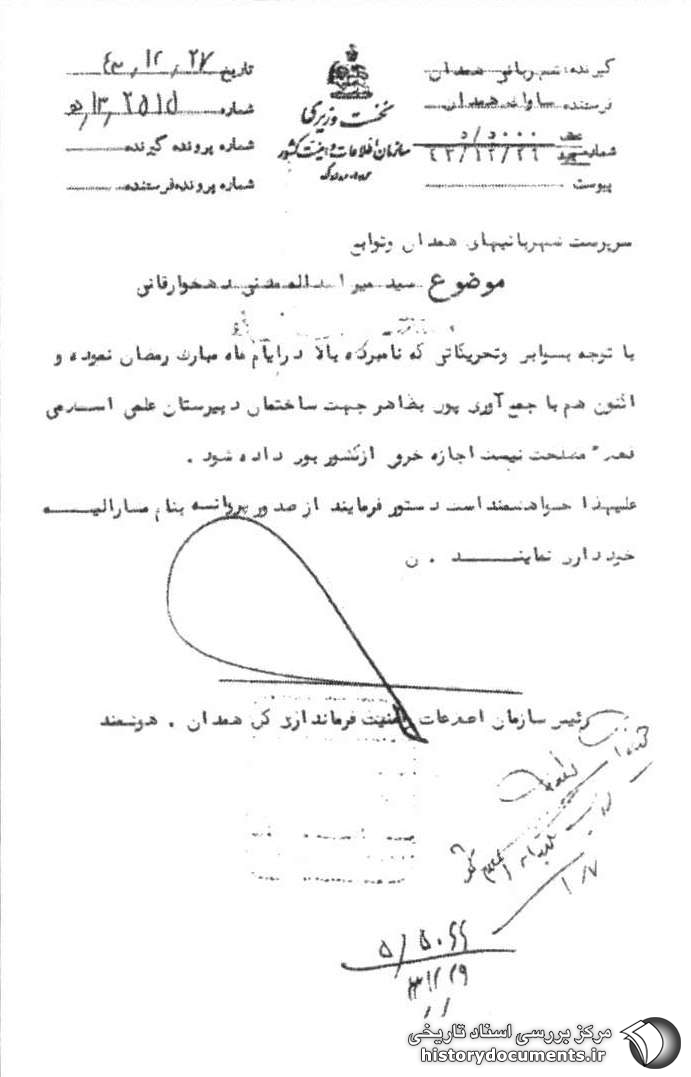 گیرنده: شهربانی همدان
فرستنده ساواک همدان
شماره ۵/۵۰۰۰
۴۳/۱۲/۲۹
پیوست
نخست وزیری
سازمان اطلاعات و امنیت کشور
تاریخ ۴۳،۱۲،۲۷
شماره
شماره پرونده گیرنده
شماره پرونده فرستنده
سرپرست شهربانیهای همدان وتوابع
موضوع سید میر اسدالله مدنی دهخوارقانی
با توجه بسیابر وتحریکاتی که نامبرده بالا درایام ماه مبارک رمضان نموده و
اکنون هم با جمع آوری پور بظاهر جهت ساختمان دبیرستان علمی اسلامی
مصلحت نیست اجازه خروج ازکشور بور داده شود .
علیهذا خواهشمنداست دستور فرمایند از صدور پروانه بنام مشارالیـــه
خودداری نماینـــد . ن
رئیس سازمان اطلاعات وامنیت فرمانداری کل همدان . هوشمند
۱/۷
۵/۵۰۴۴
مرکز بررسی اسناد تاریخی
historydocuments.ir